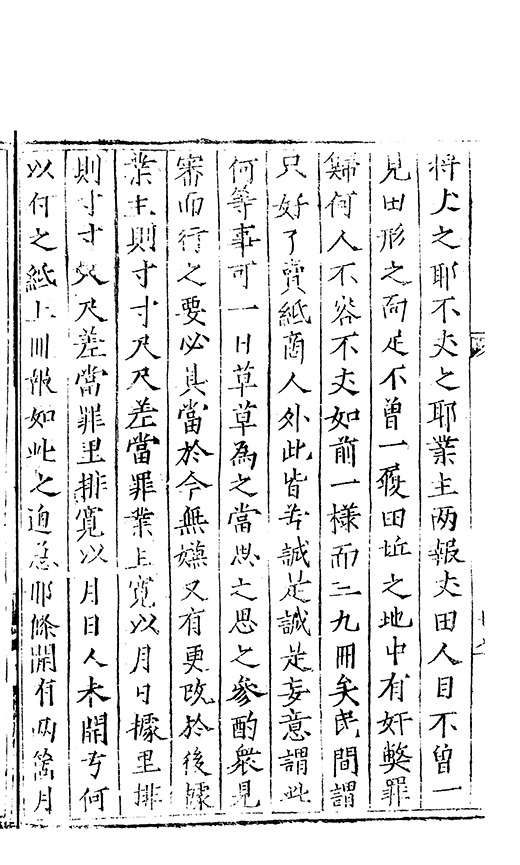 将丈之耶不丈之耶業主两報丈田人目不曾一
見田形之何足不曾一履田坵之地中有奸獘罪
歸何人不容不丈如前一樣而二九冊矣民間謂
只好了賣紙商人外此皆等誠是誠是妄意謂此
何等事可一日草草為之當思之思之參酌衆見
審而行之要必真當於今無嫌又有更改於後據
業主則寸寸尺尺差當罪業主寬以月日據里排
則寸寸尺尺差當罪里排寬以月日人未開丂何
以付之紙上冊報如此之迫急耶條開有两箇月